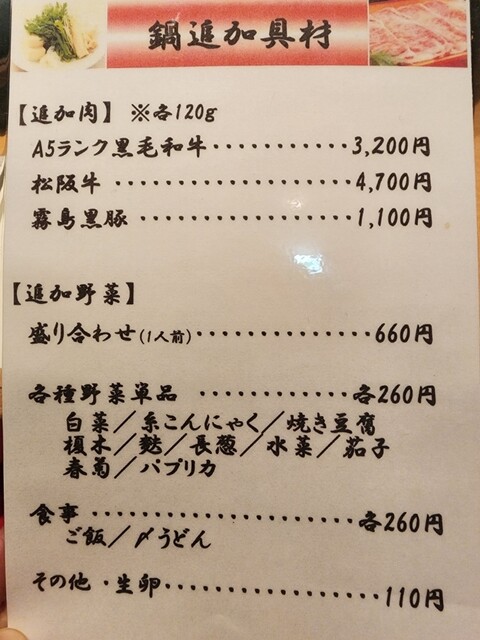 鍋追加具材
【追加肉】 ※各120g
A5ランク黒毛和牛・・・・・・・・・・・3,200円
松阪牛・・・・・・・・・・・・・・・・4,700円
霧島黒豚・・・・・・・・・・・・・・・1,100円
【追加野菜】
盛り合わせ(1人前)・・・・・・・・・・・・660円
各種野菜単品 ・・・・・・・・・・・各260円
白菜／糸こんにゃく／焼き豆腐
榎木／麩／長葱／水菜／茄子
春菊／パプリカ
食事・・・・・・・・・・・・・・・・・・各260円
ご飯／〆うどん
その他・生卵・・・・・・・・・・・・・・110円